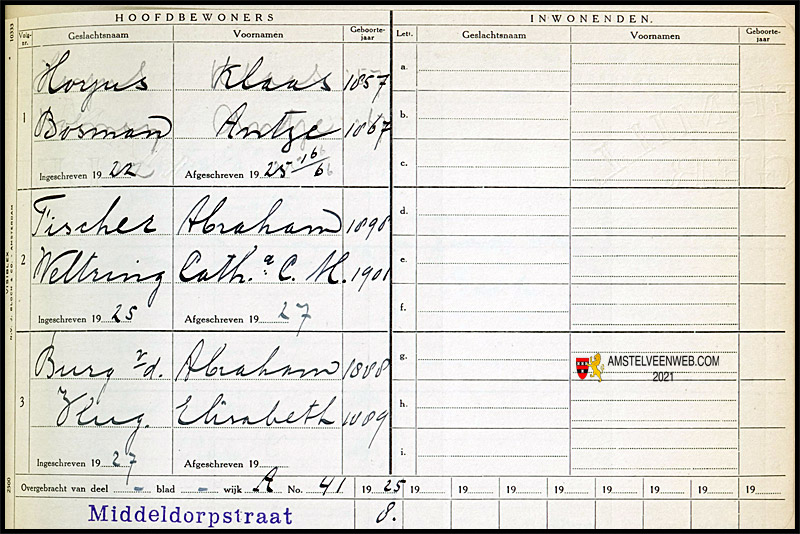 HOOFDBEWONERS INWONENDEN.
Volg-nr. Geslachtsnaam Voornamen Geboorte-jaar Lett. Geslachtsnaam Voornamen Geboorte-jaar
1 Klaas 1857 a.
Bosman Antje 1867 b.
Ingeschreven 19 22 Afgeschreven 19 25 16/6 c.
2 Fischer Abraham 1898 d.
Weltring Cath.a C. M. 1901 e.
Ingeschreven 19 25 Afgeschreven 19 27 f.
3 Burg v/d. Abraham 1888 g.
Elisabeth 1889 h.
Ingeschreven 19 27 Afgeschreven 19 i.
Overgebracht van deel – blad – wijk A No. 41 19 25 19 19 19 19 19 19 19 19
Middeldorpstraat 8.
10333
N.V. J. BLOCH & CO. AMSTERDAM
2500
AMSTELVEENWEB.COM
2021